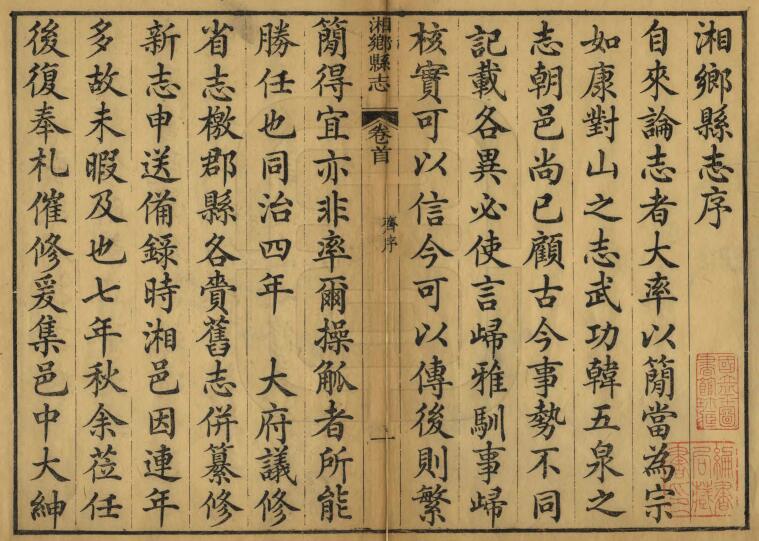 湘鄉縣志序
自來論志者大率以簡當為宗
如康對山之志武功韓五泉之
志朝邑尚已顧古今事勢不同
記載各異必使言歸雅馴事歸
核實可以信今可以傳後則繁
湘鄉縣志
卷首
齊序
一
簡得宜亦非率爾操觚者所能
勝任也同治四年 大府議修
省志檄郡縣各賫舊志併纂修
新志申送備錄時湘邑因連年
多故未暇及也七年秋余莅任
後復奉札催修爰集邑中大紳